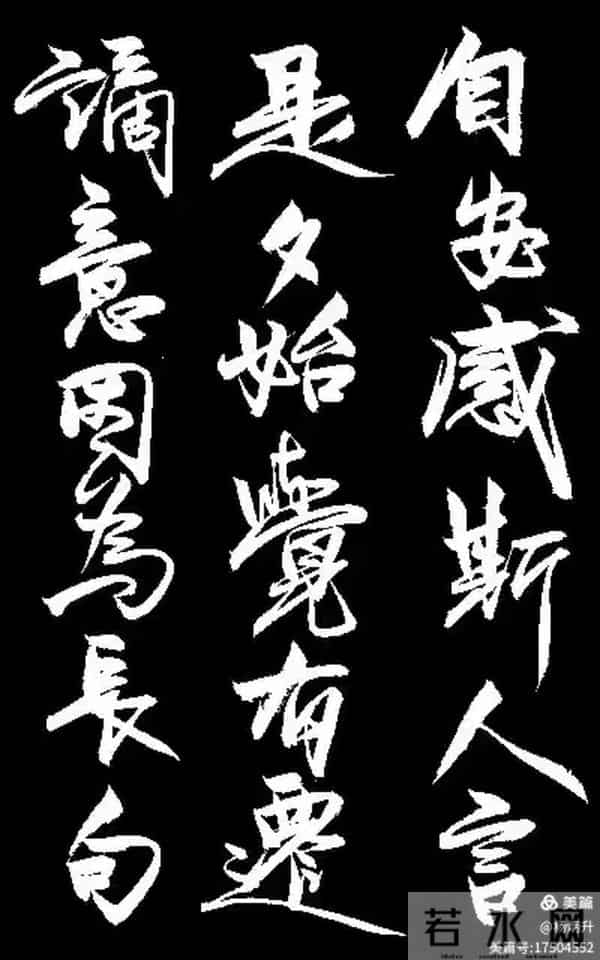 自安感斯人言
是夕始覺有遷
謫意因為長句
美篇
若水网
美篇号:17504552